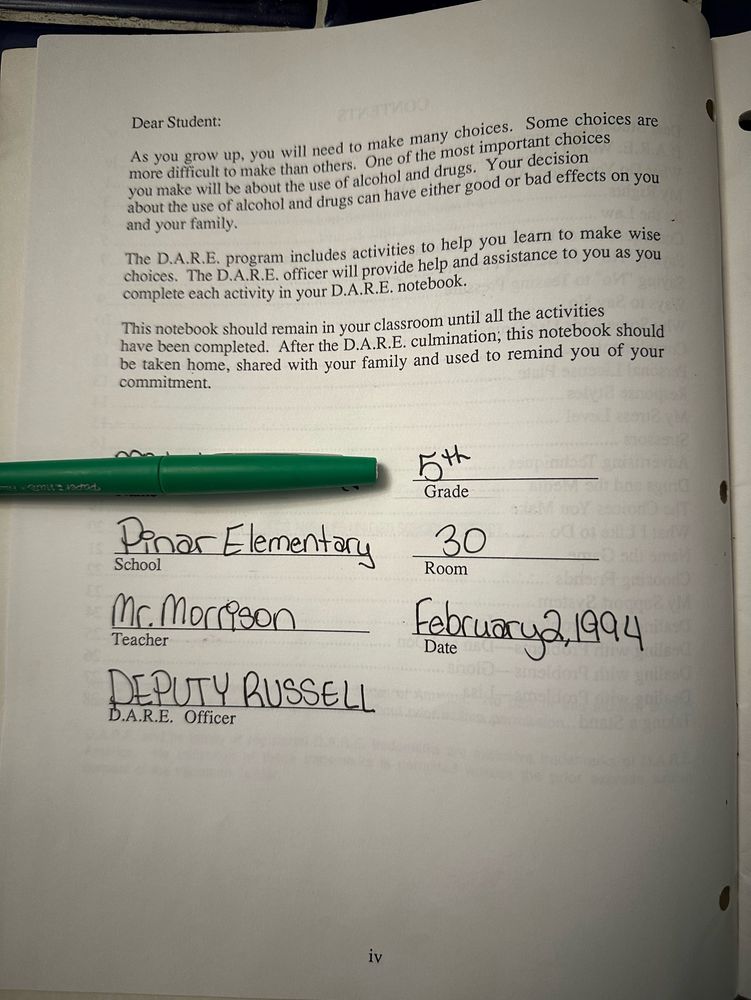 Dear Student:
As you grow up, you will need to make many choices. Some choices are
more difficult to make than others. One of the most important choices
you make will be about the use of alcohol and drugs. Your decision
about the use of alcohol and drugs can have either good or bad effects on you
and your family.
The D.A.R.E. program includes activities to help you learn to make wise
choices. The D.A.R.E. officer will provide help and assistance to you as you
complete each activity in your D.A.R.E. notebook.
This notebook should remain in your classroom until all the activities
have been completed. After the D.A.R.E. culmination, this notebook should
be taken home, shared with your family and used to remind you of your
commitment.
5th
Grade
Pinar Elementary 30
School Room
Mr. Morrison February 2, 1994
Teacher Date
DEPUTY RUSSELL
D.A.R.E. Officer
iv